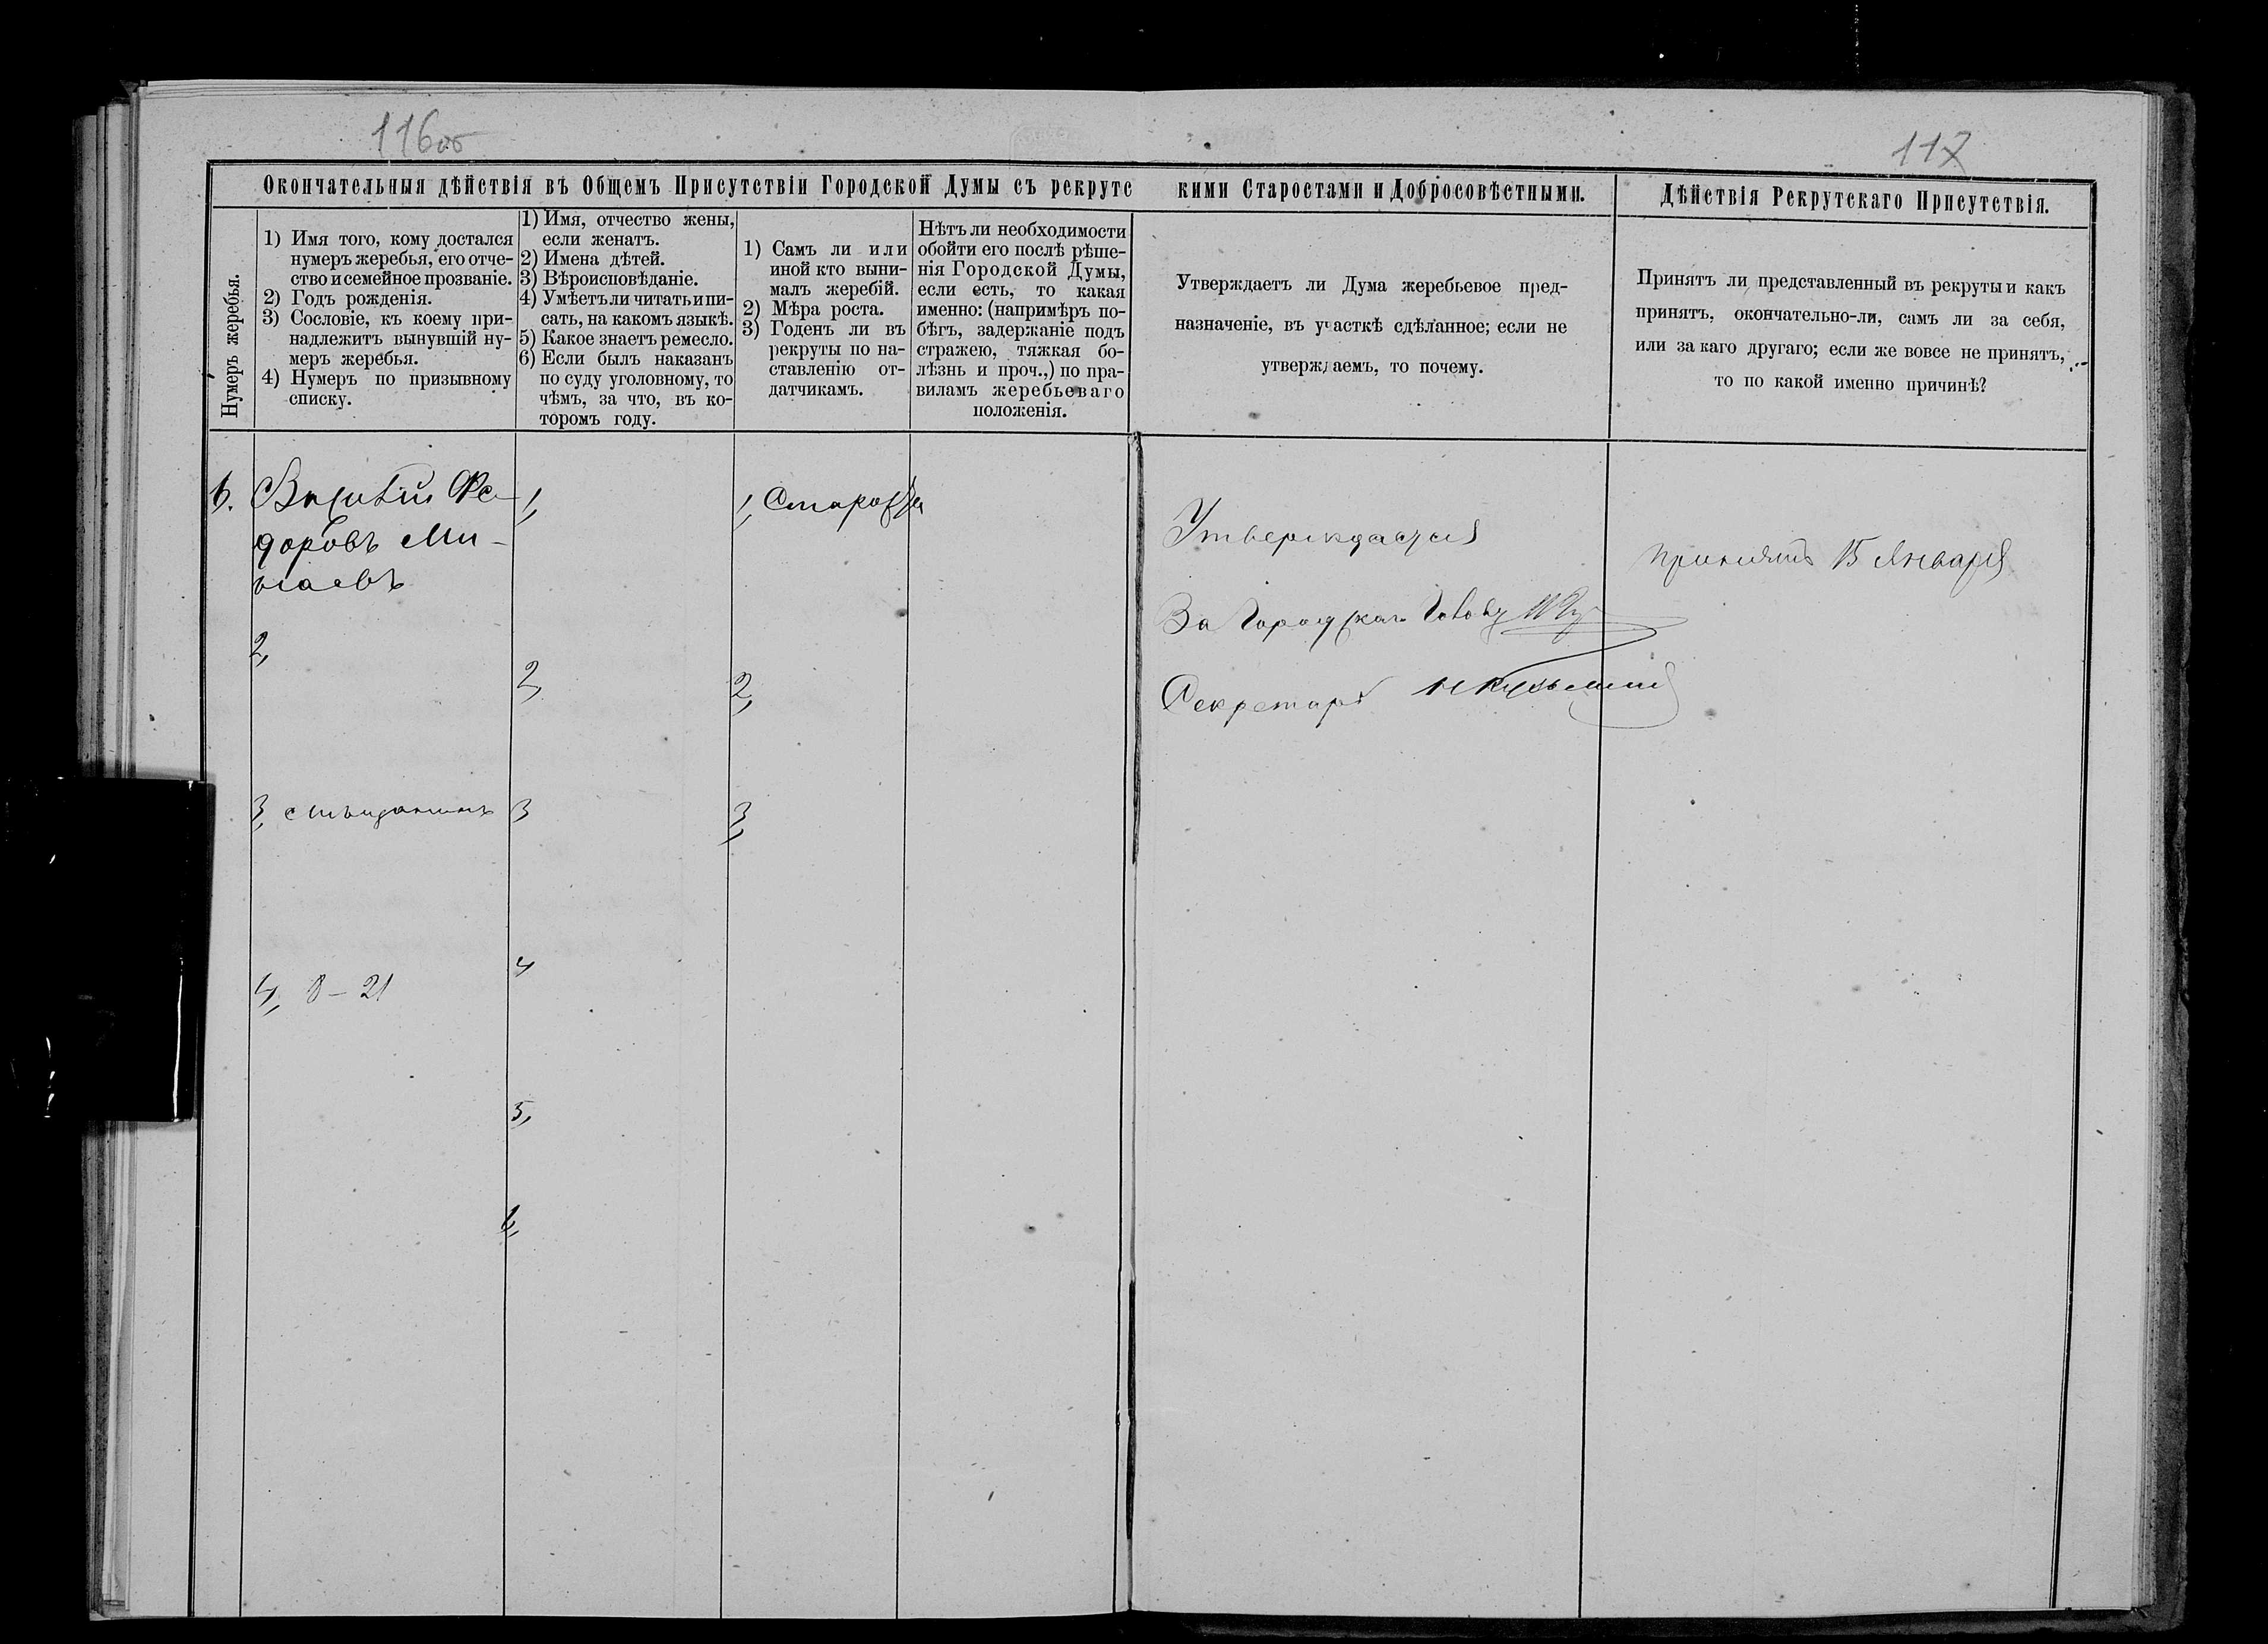 116об
117
Окончательныя дѣйствія въ Общемъ Присутствіи Городской Думы съ рекрутс
кими Старостами и Добросовѣстными.
Дѣйствія Рекрутскаго Присутствія.
Нумеръ жеребья.
1) Имя того, кому достался
нумеръ жеребья, его отче-
ство и семейное прозваніе.
2) Годъ рожденія.
3) Сословіе, къ коему при-
надлежитъ вынувшій ну-
меръ жеребья.
4) Нумеръ по призывному
списку.
1) Имя, отчество жены,
если женатъ.
2) Имена дѣтей.
3) Вѣроисповѣданіе.
4) Умѣетъ ли читать и пи-
сать, на какомъ языкѣ.
5) Какое знаетъ ремесло.
6) Если былъ наказанъ
по суду уголовному, то
чѣмъ, за что, въ ко-
торомъ году.
1) Самъ ли или
иной кто выни-
малъ жеребій.
2) Мѣра роста.
3) Годенъ ли въ
рекруты по на-
ставленію от-
датчикамъ.
Нѣтъ ли необходимости
обойти его послѣ рѣше-
нія Городской Думы,
если есть, то какая
именно: (напримѣръ по-
бѣгъ, задержаніе подъ
стражею, тяжкая бо-
лѣзнь и проч.,) по пра-
виламъ жеребьеваго
положенія.
Утверждаетъ ли Дума жеребьевое пред-
назначеніе, въ участкѣ сдѣланное; если не
утверждаемъ, то почему.
Принятъ ли представленный въ рекруты и какъ
принятъ, окончательно-ли, самъ ли за себя,
или за каго другаго; если же вовсе не принятъ,
то по какой именно причинѣ?
6.
Василій Фе-
доровъ Ми-
наевъ
2,
3, мѣщанинъ
4, 8-21
1,
2,
3
4
5,
6,
1, Староста
2,
3,
Утверждается
За Городскаго Голову
Секретарь Н Кузьминъ
принятъ 15 Января